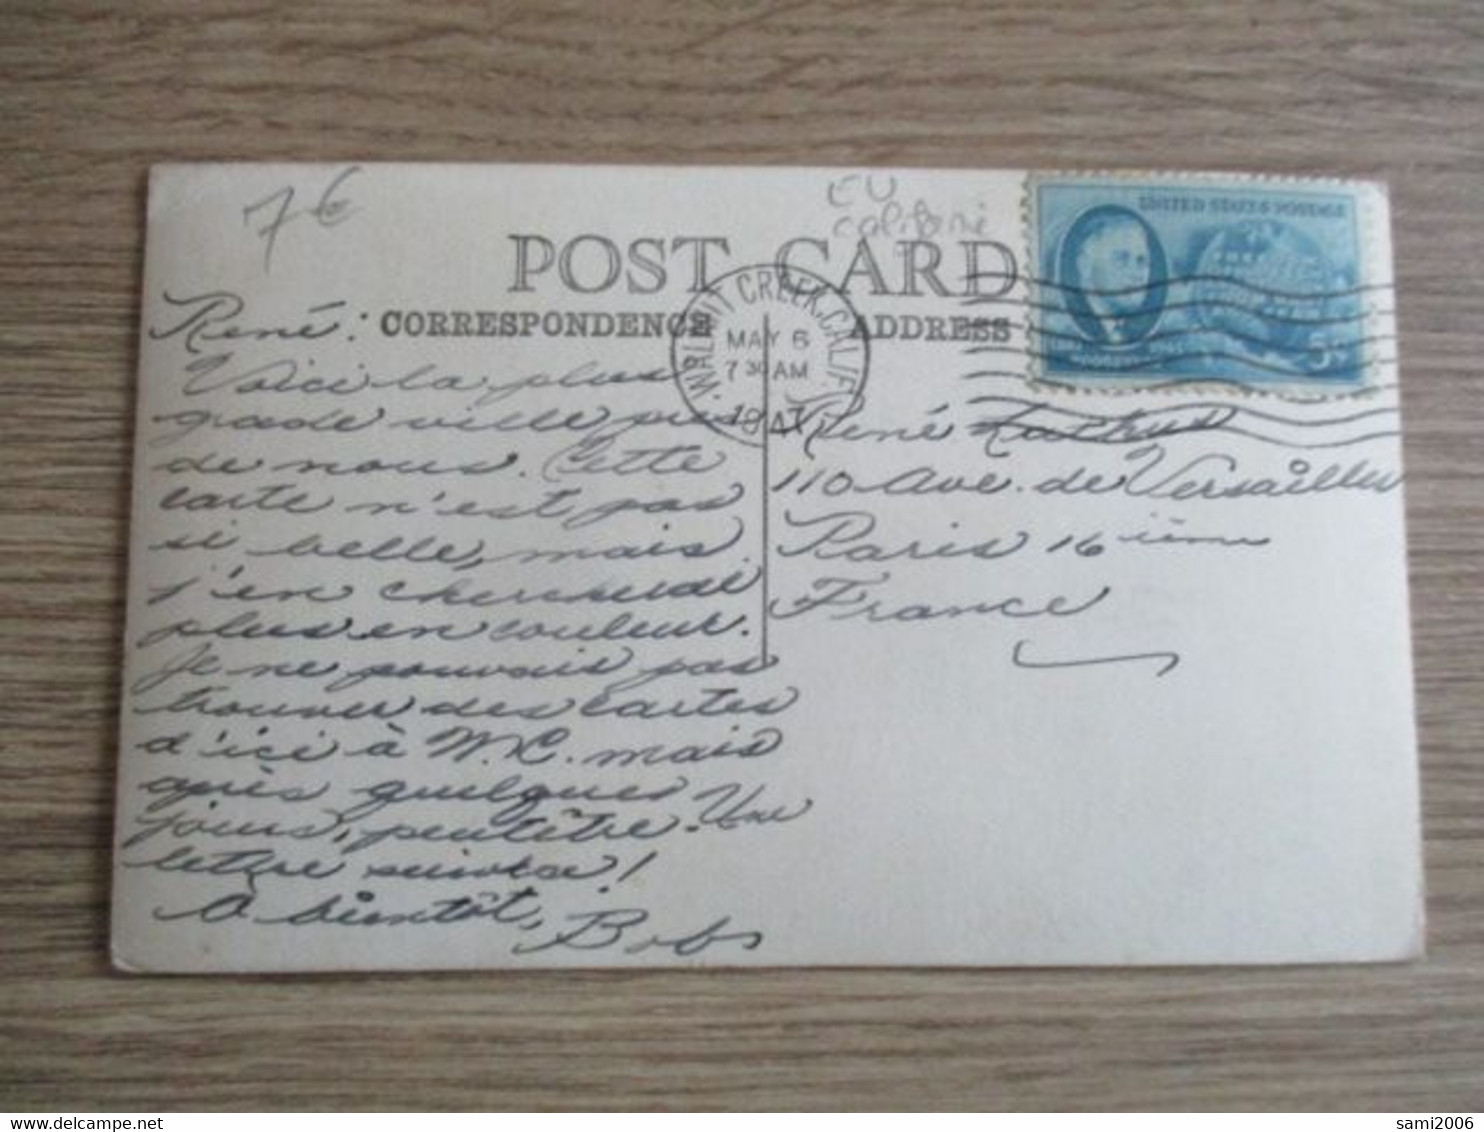 7€
EU
Californi
POST CARD
CORRESPONDENCE
ADDRESS
UNITED STATES POSTAGE
5¢
WALNUT CREEK, CALIF.
MAY 6
7 30 AM
1947
René:
Voici la plus
grade ville près
de nous. Cette
carte n'est pas
si belle, mais
j'en chercherai
plus en couleur.
Je ne pouvais pas
trouver des cartes
d'ici à W.C. mais
après quelques
jours, peutêtre. Une
lettre suivra!
A bientôt,
Bob
René
110 Ave. de Versailles
Paris 16 ième
France
sami2006